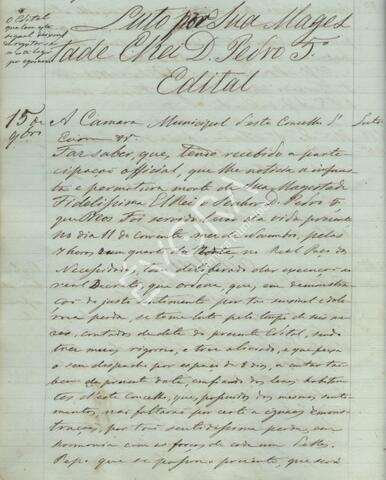 Luto por Sua Mages
tade ElRei D. Pedro 5º
Edital
O Edital
15 de
9bro
A Camara Municipal d'este Concelho d'
Evora &ª
Faz saber, que, tendo recebido a parti-
cipação official, que lhe noticia a infausta
e prematura morte de Sua Magestade
Fidelissima El Rei o Senhor D. Pedro 5º
que Deos foi servido levar da vida presente
no dia 11 do corrente mez de Novembro, pelas
7 horas e um quarto da Noite, no Real Paço das
Necessidades, tem deliberado dar execução ao
real Decreto, que ordena, que, em demonstra-
ção do justo sentimento por tão sensivel e dolo-
rosa perda, se tome luto pelo tempo de seis me-
zes, contados da data do presente Edital, sendo
tres mezes rigoroso, e tres aliviado, e que
o sem despacho por espaço de 8 dias, a contar tam-
bem da presente data, confiando dos leaes habitan-
tes d'este concelho, que, possuidos dos mesmos senti-
mentos, não faltarão por certo a eguaes demons-
trações, por tão sentidissima perda, em
harmonia com as forças de cada um d'elles.
Pelo que se passou o presente, que será
Luto
EVORA